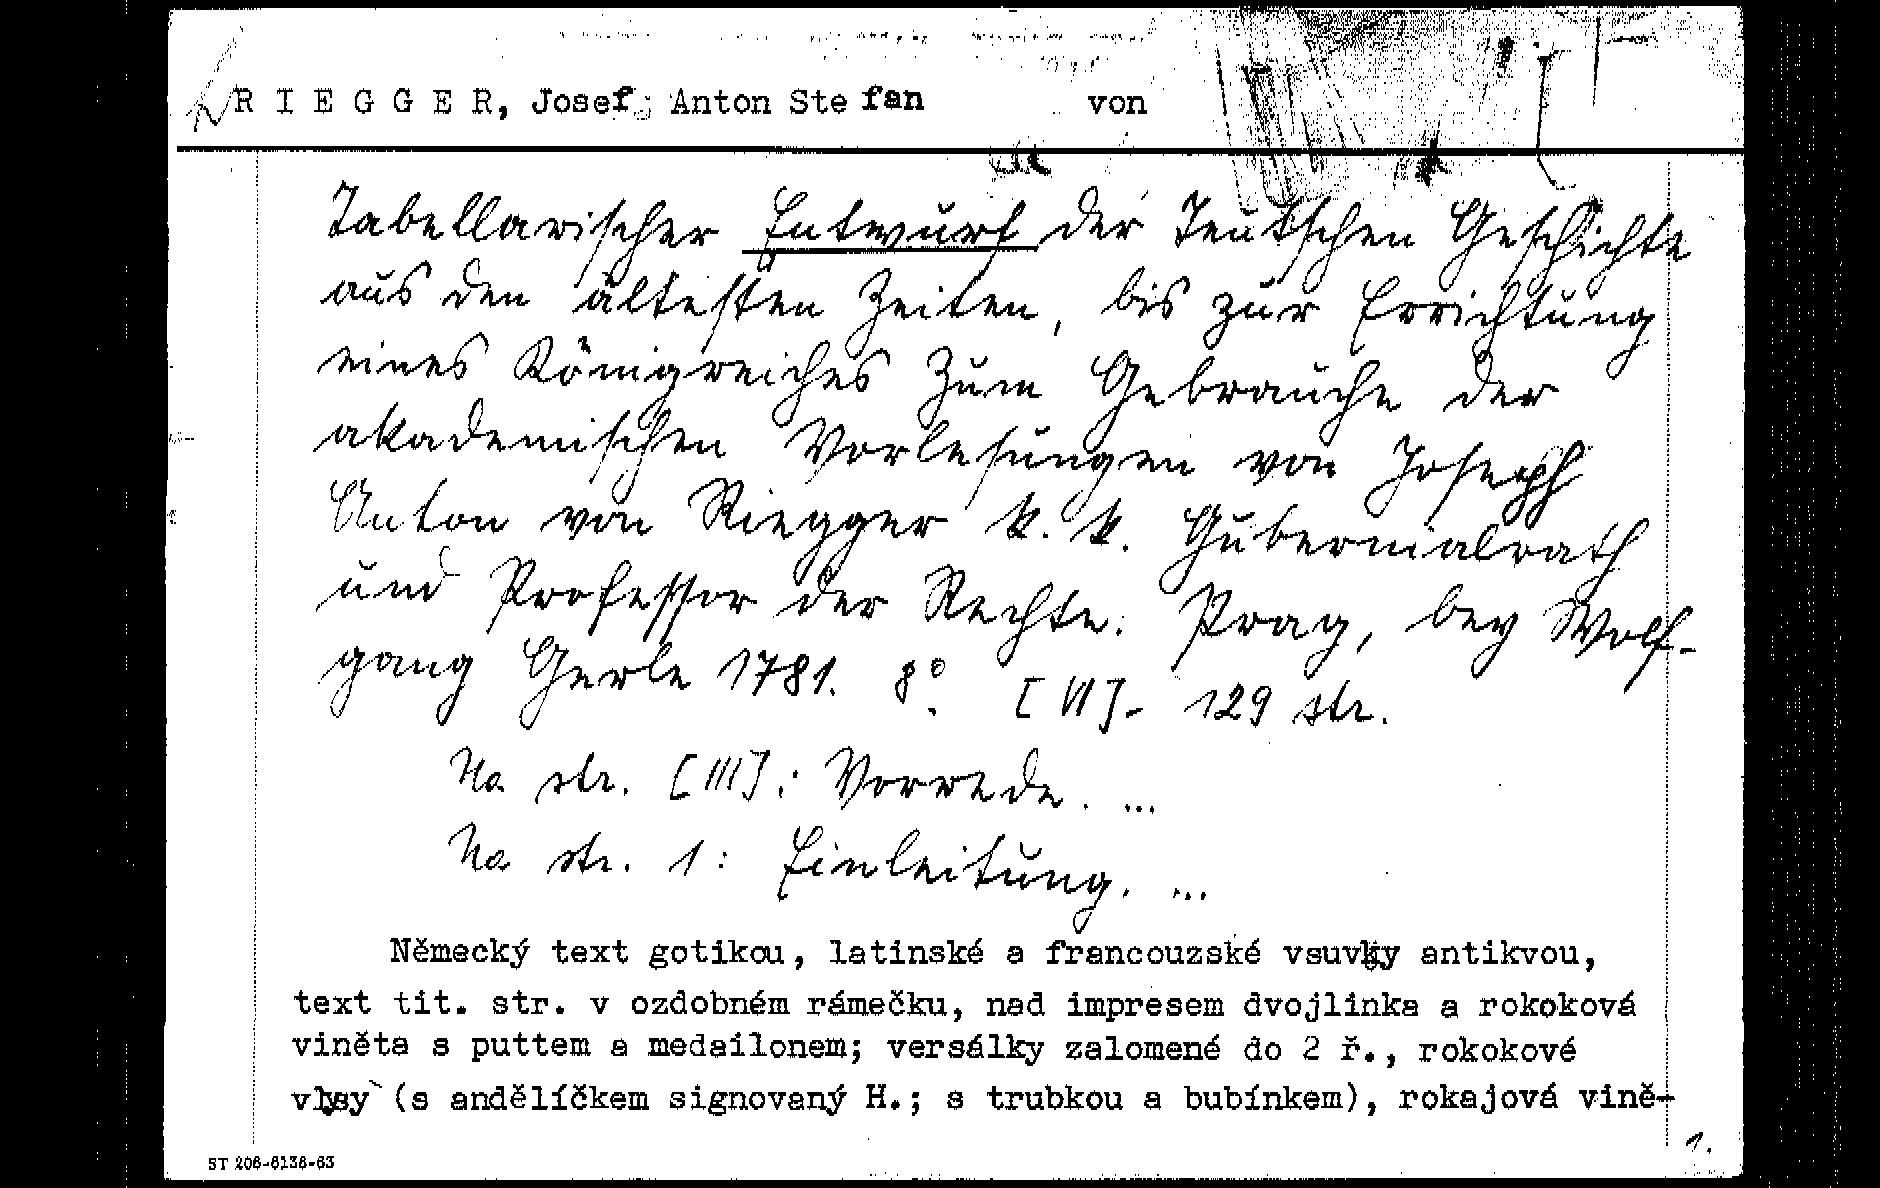 R I E G G E R, Josef Anton Stefan von
Tabellarischer Entwurf der Teutschen Geschichte
aus den ältesten Zeiten, bis zur Errichtung
eines Königreiches zum Gebrauche der
akademischen Vorlesungen von Joseph
Anton von Riegger k. k. Gubernialrath
und Professor der Rechte. Prag, bey Wolf-
gang Gerle 1781. 8°. [VI]- 129 str.
Na str. [III]: Vorrede. ...
Na str. 1: Einleitung. ...
Německý text gotikou, latinské a francouzské vsuvky antikvou,
text tit. str. v ozdobném rámečku, nad impresem dvojlinka a rokoková
viněta s puttem a medailonem; versálky zalomené do 2 ř., rokokové
vlysy (s andělíčkem signovaný H.; s trubkou a bubínkem), rokajová vině-
1.
ST 206-6136-63